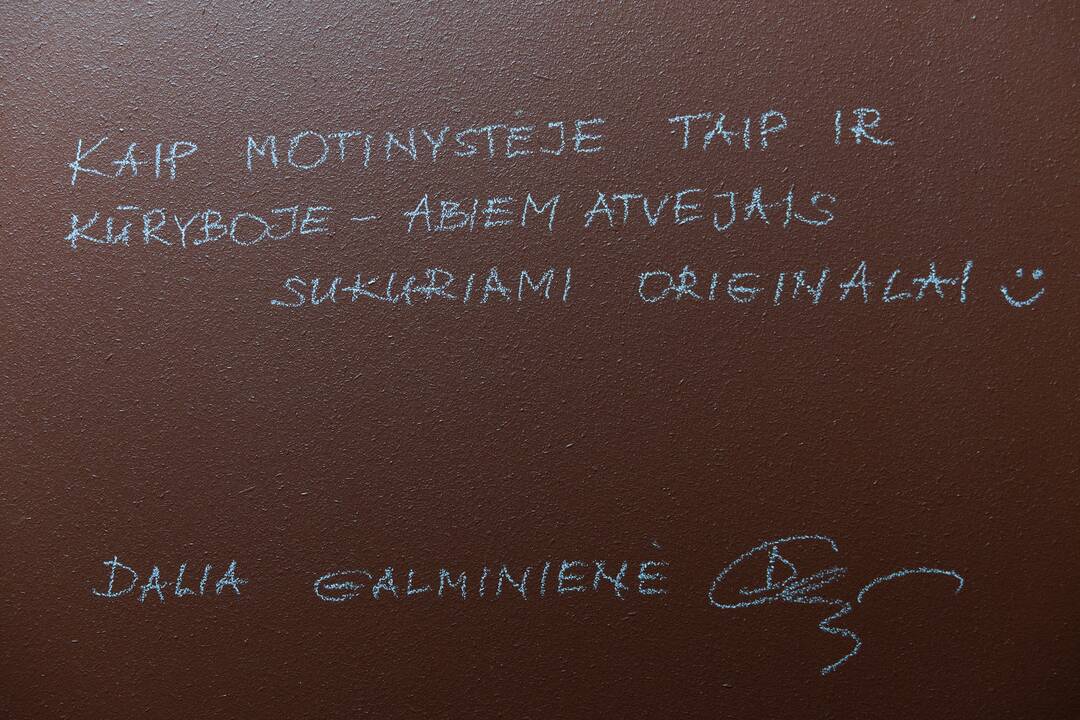 KAIP MOTINYSTĖJE TAIP IR
KŪRYBOJE – ABIEM ATVEJAIS
SUKURIAMI ORIGINALAI :)
DALIA GALMINIENĖ